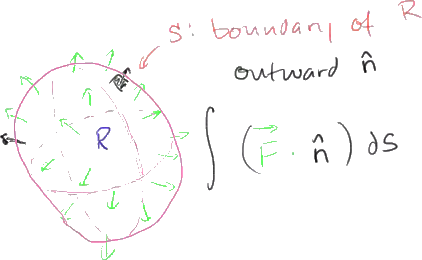 S: boundary of R
outward n̂
R
∫ (F⃗ · n̂) dS